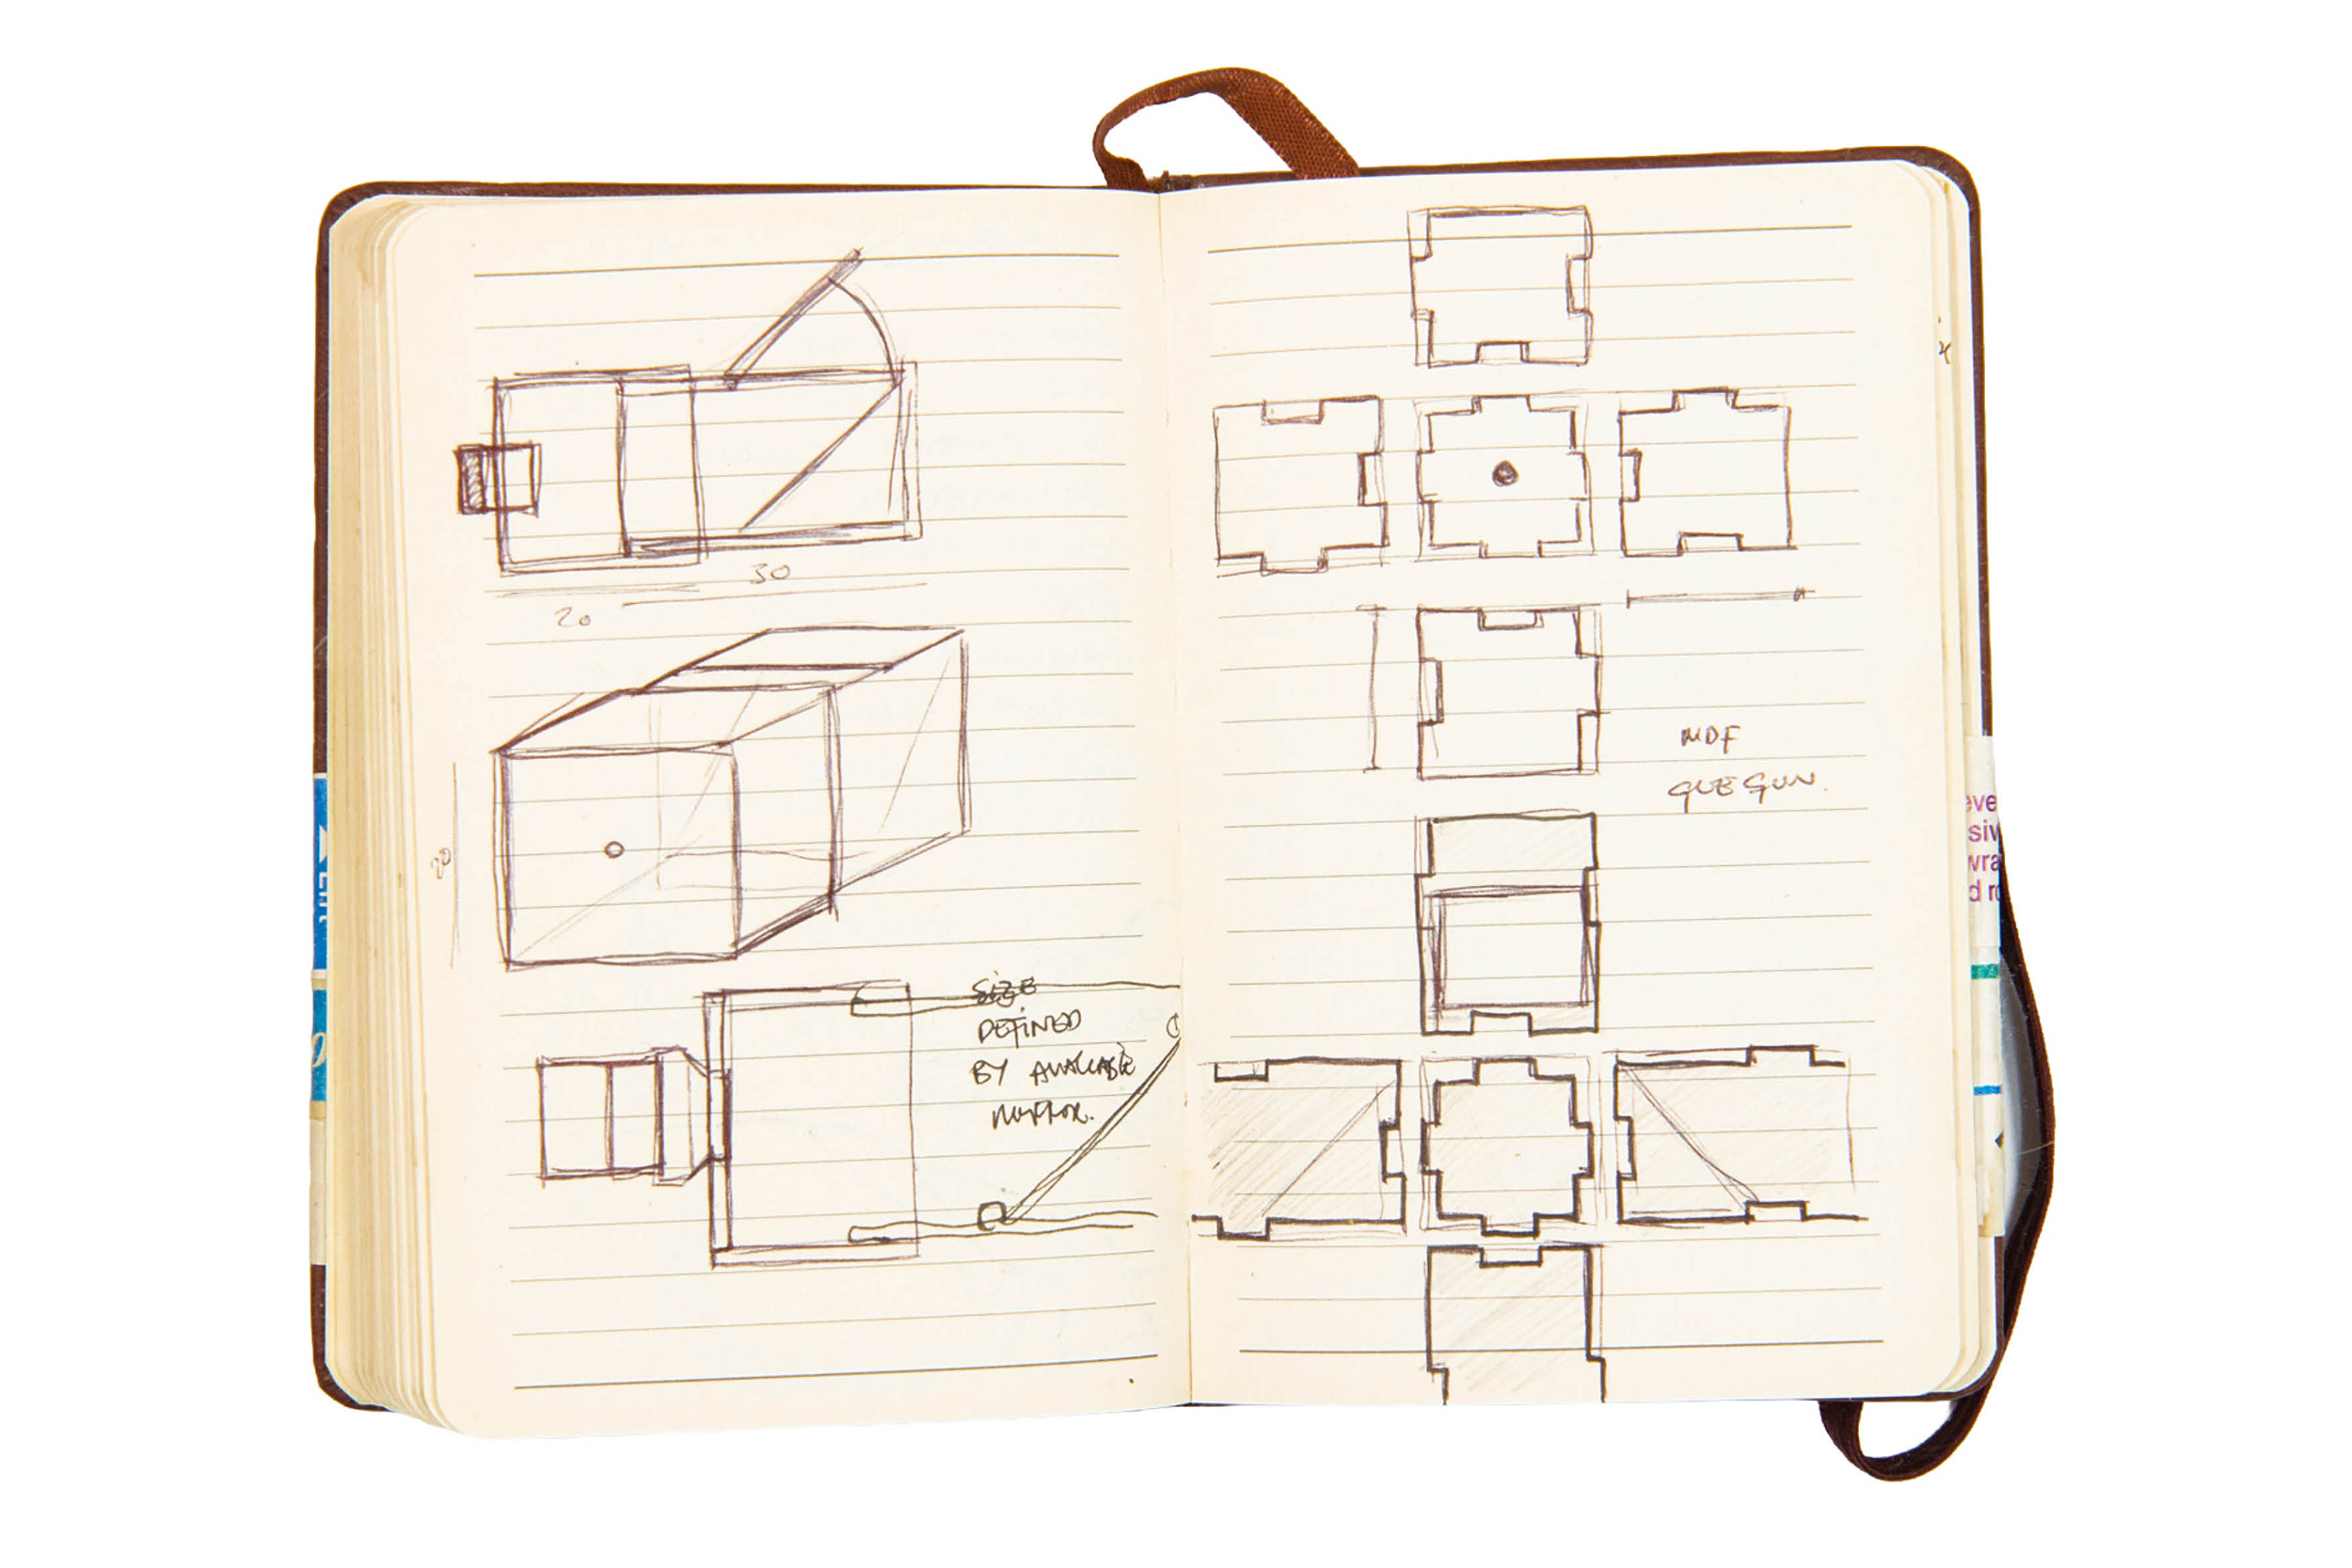 30
20
20
SIZE
DEFINED
BY AVAILABLE
MIRROR.
MDF
GLUE GUN.
eve
siv
wra
d ro